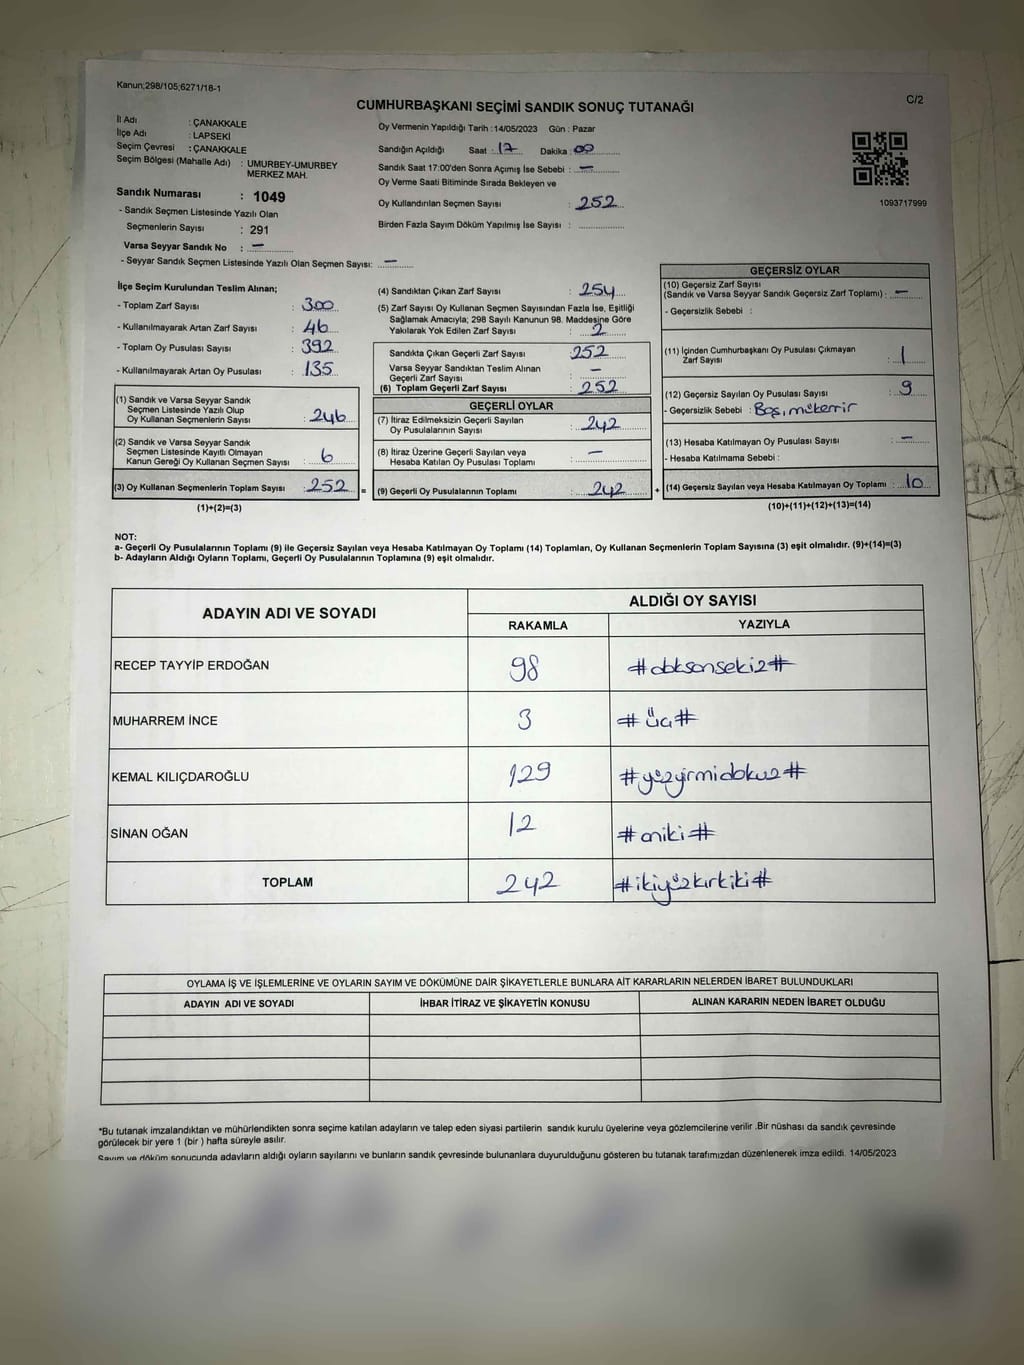 Kanun;298/105;6271/18-1
CUMHURBAŞKANI SEÇİMİ SANDIK SONUÇ TUTANAĞI
C/2
İl Adı : ÇANAKKALE
İlçe Adı : LAPSEKİ
Seçim Çevresi : ÇANAKKALE
Seçim Bölgesi (Mahalle Adı) : UMURBEY-UMURBEY
MERKEZ MAH.
Sandık Numarası : 1049
- Sandık Seçmen Listesinde Yazılı Olan
Seçmenlerin Sayısı : 291
Varsa Seyyar Sandık No : —
- Seyyar Sandık Seçmen Listesinde Yazılı Olan Seçmen Sayısı: —
Oy Vermenin Yapıldığı Tarih :14/05/2023 Gün : Pazar
Sandığın Açıldığı Saat : 17 Dakika : 00
Sandık Saat 17:00'den Sonra Açımış İse Sebebi : —
Oy Verme Saati Bitiminde Sırada Bekleyen ve
Oy Kullandırılan Seçmen Sayısı : 252
Birden Fazla Sayım Döküm Yapılmış İse Sayısı :
1093717999
İlçe Seçim Kurulundan Teslim Alınan;
- Toplam Zarf Sayısı : 300
- Kullanılmayarak Artan Zarf Sayısı : 46
- Toplam Oy Pusulası Sayısı : 392
- Kullanılmayarak Artan Oy Pusulası : 135
(1) Sandık ve Varsa Seyyar Sandık
Seçmen Listesinde Yazılı Olup
Oy Kullanan Seçmenlerin Sayısı : 246
(2) Sandık ve Varsa Seyyar Sandık
Seçmen Listesinde Kayıtlı Olmayan
Kanun Gereği Oy Kullanan Seçmen Sayısı : 6
(3) Oy Kullanan Seçmenlerin Toplam Sayısı : 252 =
(1)+(2)=(3)
(4) Sandıktan Çıkan Zarf Sayısı : 254
(5) Zarf Sayısı Oy Kullanan Seçmen Sayısından Fazla İse, Eşitliği
Sağlamak Amacıyla; 298 Sayılı Kanunun 98. Maddesine Göre
Yakılarak Yok Edilen Zarf Sayısı : 2
Sandıkta Çıkan Geçerli Zarf Sayısı : 252
Varsa Seyyar Sandıktan Teslim Alınan
Geçerli Zarf Sayısı : —
(6) Toplam Geçerli Zarf Sayısı : 252
GEÇERLİ OYLAR
(7) İtiraz Edilmeksizin Geçerli Sayılan
Oy Pusulalarının Sayısı : 242
(8) İtiraz Üzerine Geçerli Sayılan veya
Hesaba Katılan Oy Pusulası Toplamı : —
(9) Geçerli Oy Pusulalarının Toplamı : 242 +
GEÇERSİZ OYLAR
(10) Geçersiz Zarf Sayısı
(Sandık ve Varsa Seyyar Sandık Geçersiz Zarf Toplamı) : —
- Geçersizlik Sebebi :
(11) İçinden Cumhurbaşkanı Oy Pusulası Çıkmayan
Zarf Sayısı : 1
(12) Geçersiz Sayılan Oy Pusulası Sayısı : 9
- Geçersizlik Sebebi : Boş, mükerrir
(13) Hesaba Katılmayan Oy Pusulası Sayısı : —
- Hesaba Katılmama Sebebi :
(14) Geçersiz Sayılan veya Hesaba Katılmayan Oy Toplamı : 10
(10)+(11)+(12)+(13)=(14)
NOT:
a- Geçerli Oy Pusulalarının Toplamı (9) ile Geçersiz Sayılan veya Hesaba Katılmayan Oy Toplamı (14) Toplamları, Oy Kullanan Seçmenlerin Toplam Sayısına (3) eşit olmalıdır. (9)+(14)=(3)
b- Adayların Aldığı Oyların Toplamı, Geçerli Oy Pusulalarının Toplamına (9) eşit olmalıdır.
ADAYIN ADI VE SOYADI ALDIĞI OY SAYISI
RAKAMLA YAZIYLA
RECEP TAYYİP ERDOĞAN 98 #doksansekiz#
MUHARREM İNCE 3 #üç#
KEMAL KILIÇDAROĞLU 129 #yüzyirmidokuz#
SİNAN OĞAN 12 #oniki#
TOPLAM 242 #ikiyüzkırkiki#
OYLAMA İŞ VE İŞLEMLERİNE VE OYLARIN SAYIM VE DÖKÜMÜNE DAİR ŞİKAYETLERLE BUNLARA AİT KARARLARIN NELERDEN İBARET BULUNDUKLARI
ADAYIN ADI VE SOYADI İHBAR İTİRAZ VE ŞİKAYETİN KONUSU ALINAN KARARIN NEDEN İBARET OLDUĞU
*Bu tutanak imzalandıktan ve mühürlendikten sonra seçime katılan adayların ve talep eden siyasi partilerin sandık kurulu üyelerine veya gözlemcilerine verilir .Bir nüshası da sandık çevresinde
görülecek bir yere 1 (bir ) hafta süreyle asılır.
Sayım ve döküm sonucunda adayların aldığı oyların sayılarını ve bunların sandık çevresinde bulunanlara duyurulduğunu gösteren bu tutanak tarafımızdan düzenlenerek imza edildi. 14/05/2023